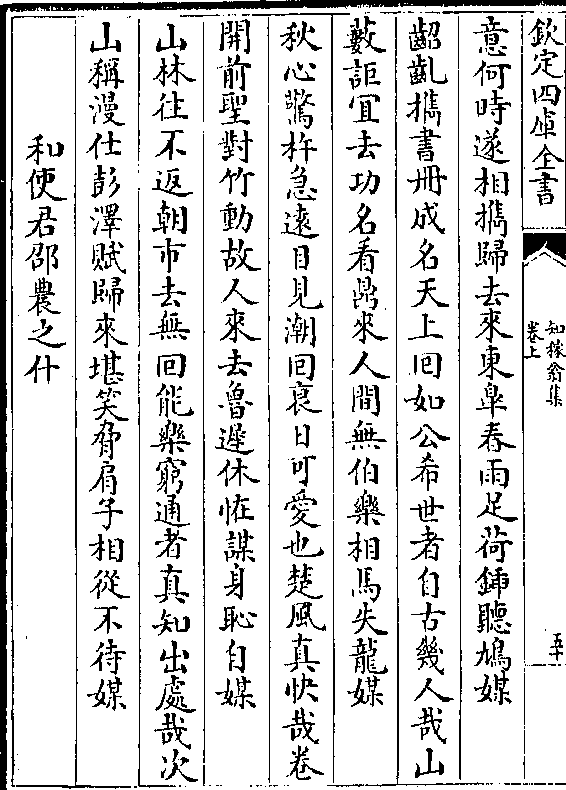 欽定四庫全書
知稼翁集
卷上
五十
意何時遂相攜歸去來東臯春雨足荷鍤聽鳩媒
齠齔攜書冊成名天上回如公希世者自古幾人哉山
藪詎宜去功名看鼎來人間無伯樂相馬失龍媒
秋心驚杵急遠目見潮回哀日可愛也楚風真快哉卷
開前聖對竹動故人來去魯遲休恠謀身恥自媒
山林往不返朝市去無回能樂窮通者真知出處哉次
山稱漫仕彭澤賦歸來堪笑脅肩子相從不待媒
和使君邵農之什